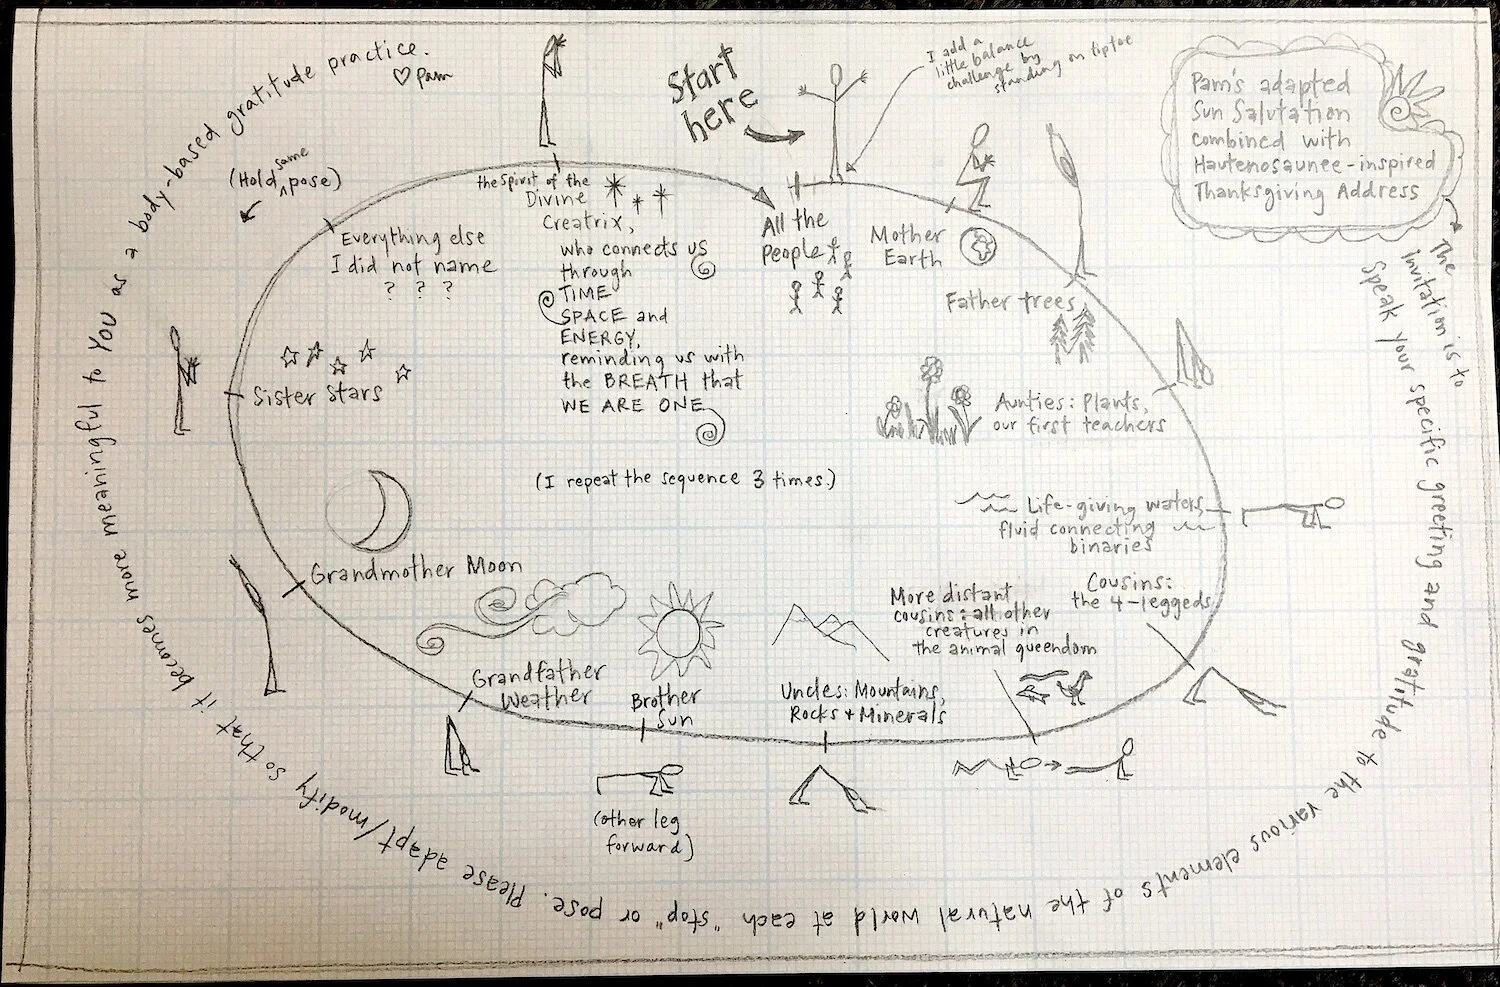 Pam's adapted
Sun Salutation
combined with
Hautenosaunee-inspired
Thanksgiving Address
The invitation is to speak your specific greeting and gratitude to the various elements of the natural world at each "stop" or pose. Please adapt/modify so that it becomes more meaningful to YOU as a body-based gratitude practice.
♡ Pam
Start
here
I add a
little balance
challenge by
standing on tiptoe
All the
People
Mother
Earth
Father trees
Aunties: Plants,
our first teachers
Life-giving waters,
fluid connecting
binaries
Cousins:
the 4-leggeds
More distant
cousins: all other
creatures in
the animal queendom
Uncles: Mountains,
Rocks + Minerals
Brother
Sun
(other leg
forward)
Grandfather
Weather
Grandmother Moon
Sister Stars
Everything else
I did not name
? ? ?
(Hold same pose)
the Spirit of the
Divine
Creatrix,
who connects us
through
TIME
SPACE and
ENERGY,
reminding us with
the BREATH that
WE ARE ONE
(I repeat the sequence 3 times.)